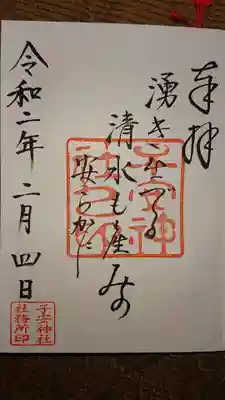 奉拝
湧き出づる
清水も産みの
安らかに
令和二年二月四日
子安神社
社務所印